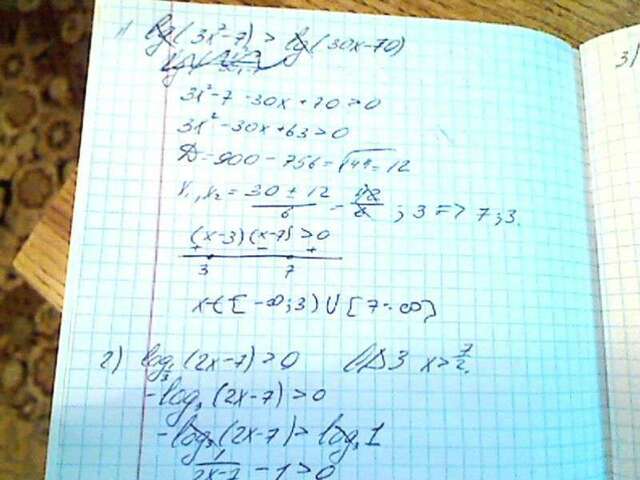 1) lg(3x²-7) > lg(30x-70)
3x²-7-30x+70>0
3x²-30x+63>0
D=900-756=√144=12
x₁,x₂ = (30±12)/6 = 42/6 ; 3 => 7;3.
(x-3)(x-7)>0
+ - +
3 7
x∈[-∞;3)∪[7-∞)
2) log⅓(2x-7)>0 ОДЗ x>7/2.
-log₃(2x-7)>0
-log₃(2x-7)>log₃1
1/(2x-7) -1>0
3)